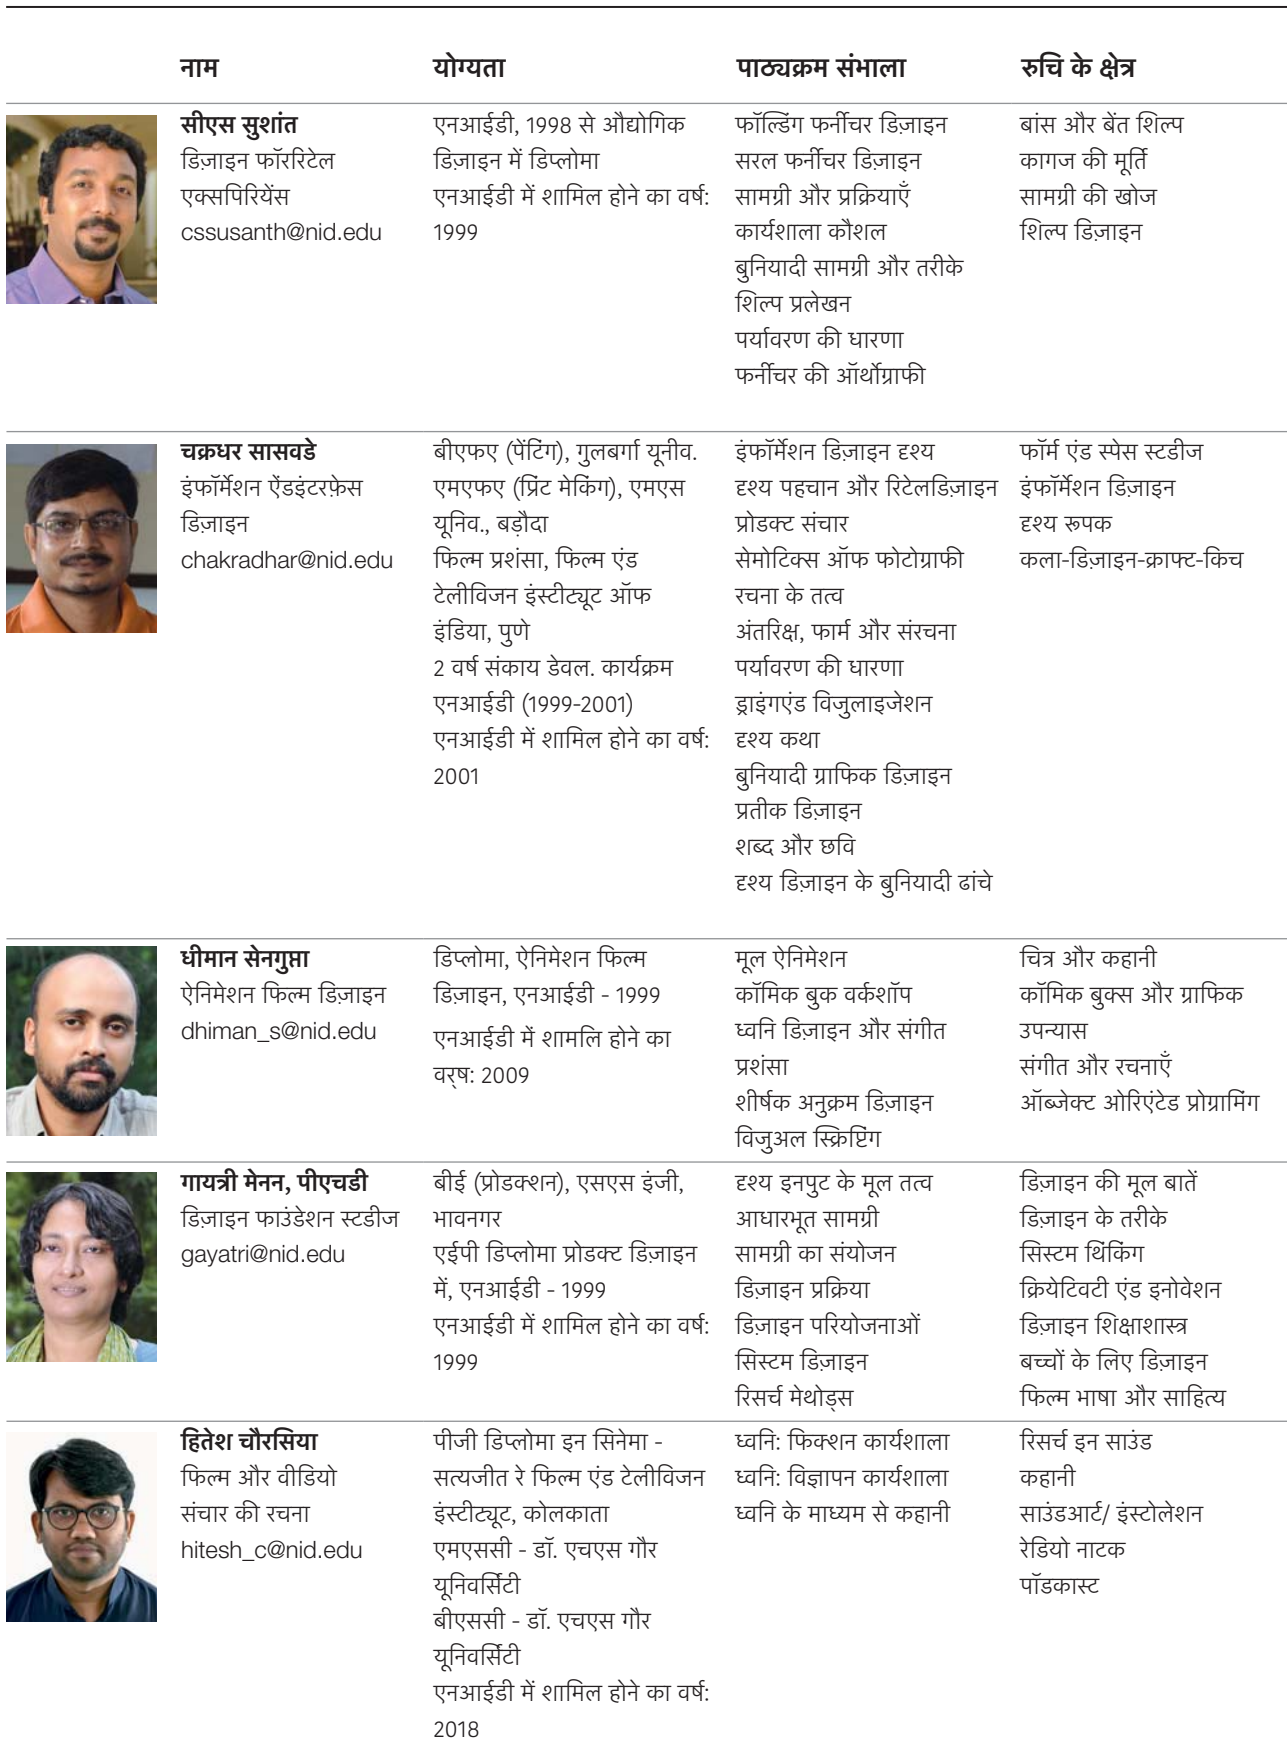 नाम
योग्यता
पाठ्यक्रम संभाला
रुचि के क्षेत्र
सीएस सुशांत
डिज़ाइन फॉररिटेल
एक्सपिरियेंस
cssusanth@nid.edu
एनआईडी, 1998 से औद्योगिक
डिज़ाइन में डिप्लोमा
एनआईडी में शामिल होने का वर्ष:
1999
फॉल्डिंग फर्नीचर डिज़ाइन
सरल फर्नीचर डिज़ाइन
सामग्री और प्रक्रियाएँ
कार्यशाला कौशल
बुनियादी सामग्री और तरीके
शिल्प प्रलेखन
पर्यावरण की धारणा
फर्नीचर की ऑर्थोग्राफी
बांस और बेंत शिल्प
कागज की मूर्ति
सामग्री की खोज
शिल्प डिज़ाइन
चक्रधर सासवडे
इंफॉर्मेशन ऐंडइंटरफ़ेस
डिज़ाइन
chakradhar@nid.edu
बीएफए (पेंटिंग), गुलबर्गा यूनीव.
एमएफए (प्रिंट मेकिंग), एमएस
यूनिव., बड़ौदा
फिल्म प्रशंसा, फिल्म एंड
टेलीविजन इंस्टीट्यूट ऑफ
इंडिया, पुणे
2 वर्ष संकाय डेवल. कार्यक्रम
एनआईडी (1999-2001)
एनआईडी में शामिल होने का वर्ष:
2001
इंफॉर्मेशन डिज़ाइन दृश्य
दृश्य पहचान और रिटेलडिज़ाइन
प्रोडक्ट संचार
सेमोटिक्स ऑफ फोटोग्राफी
रचना के तत्व
अंतरिक्ष, फार्म और संरचना
पर्यावरण की धारणा
ड्राइंगएंड विजुलाइजेशन
दृश्य कथा
बुनियादी ग्राफिक डिज़ाइन
प्रतीक डिज़ाइन
शब्द और छवि
दृश्य डिज़ाइन के बुनियादी ढांचे
फॉर्म एंड स्पेस स्टडीज
इंफॉर्मेशन डिज़ाइन
दृश्य रूपक
कला-डिज़ाइन-क्राफ्ट-किच
धीमान सेनगुप्ता
ऐनिमेशन फिल्म डिज़ाइन
dhiman_s@nid.edu
डिप्लोमा, ऐनिमेशन फिल्म
डिज़ाइन, एनआईडी - 1999
एनआईडी में शामलि होने का
वर्‌ष: 2009
मूल ऐनिमेशन
कॉमिक बुक वर्कशॉप
ध्वनि डिज़ाइन और संगीत
प्रशंसा
शीर्षक अनुक्रम डिज़ाइन
विजुअल स्क्रिप्टिंग
चित्र और कहानी
कॉमिक बुक्स और ग्राफिक
उपन्यास
संगीत और रचनाएँ
ऑब्जेक्ट ओरिएंटेड प्रोग्रामिंग
गायत्री मेनन, पीएचडी
डिज़ाइन फाउंडेशन स्टडीज
gayatri@nid.edu
बीई (प्रोडक्शन), एसएस इंजी,
भावनगर
एईपी डिप्लोमा प्रोडक्ट डिज़ाइन
में, एनआईडी - 1999
एनआईडी में शामिल होने का वर्ष:
1999
दृश्य इनपुट के मूल तत्व
आधारभूत सामग्री
सामग्री का संयोजन
डिज़ाइन प्रक्रिया
डिज़ाइन परियोजनाओं
सिस्टम डिज़ाइन
रिसर्च मेथोड्स
डिज़ाइन की मूल बातें
डिज़ाइन के तरीके
सिस्टम थिंकिंग
क्रियेटिवटी एंड इनोवेशन
डिज़ाइन शिक्षाशास्त्र
बच्चों के लिए डिज़ाइन
फिल्म भाषा और साहित्य
हितेश चौरसिया
फिल्म और वीडियो
संचार की रचना
hitesh_c@nid.edu
पीजी डिप्लोमा इन सिनेमा -
सत्यजीत रे फिल्म एंड टेलीविजन
इंस्टीट्यूट, कोलकाता
एमएससी - डॉ. एचएस गौर
यूनिवर्सिटी
बीएससी - डॉ. एचएस गौर
यूनिवर्सिटी
एनआईडी में शामिल होने का वर्ष:
2018
ध्वनि: फिक्शन कार्यशाला
ध्वनि: विज्ञापन कार्यशाला
ध्वनि के माध्यम से कहानी
रिसर्च इन साउंड
कहानी
साउंडआर्ट/ इंस्टोलेशन
रेडियो नाटक
पॉडकास्ट